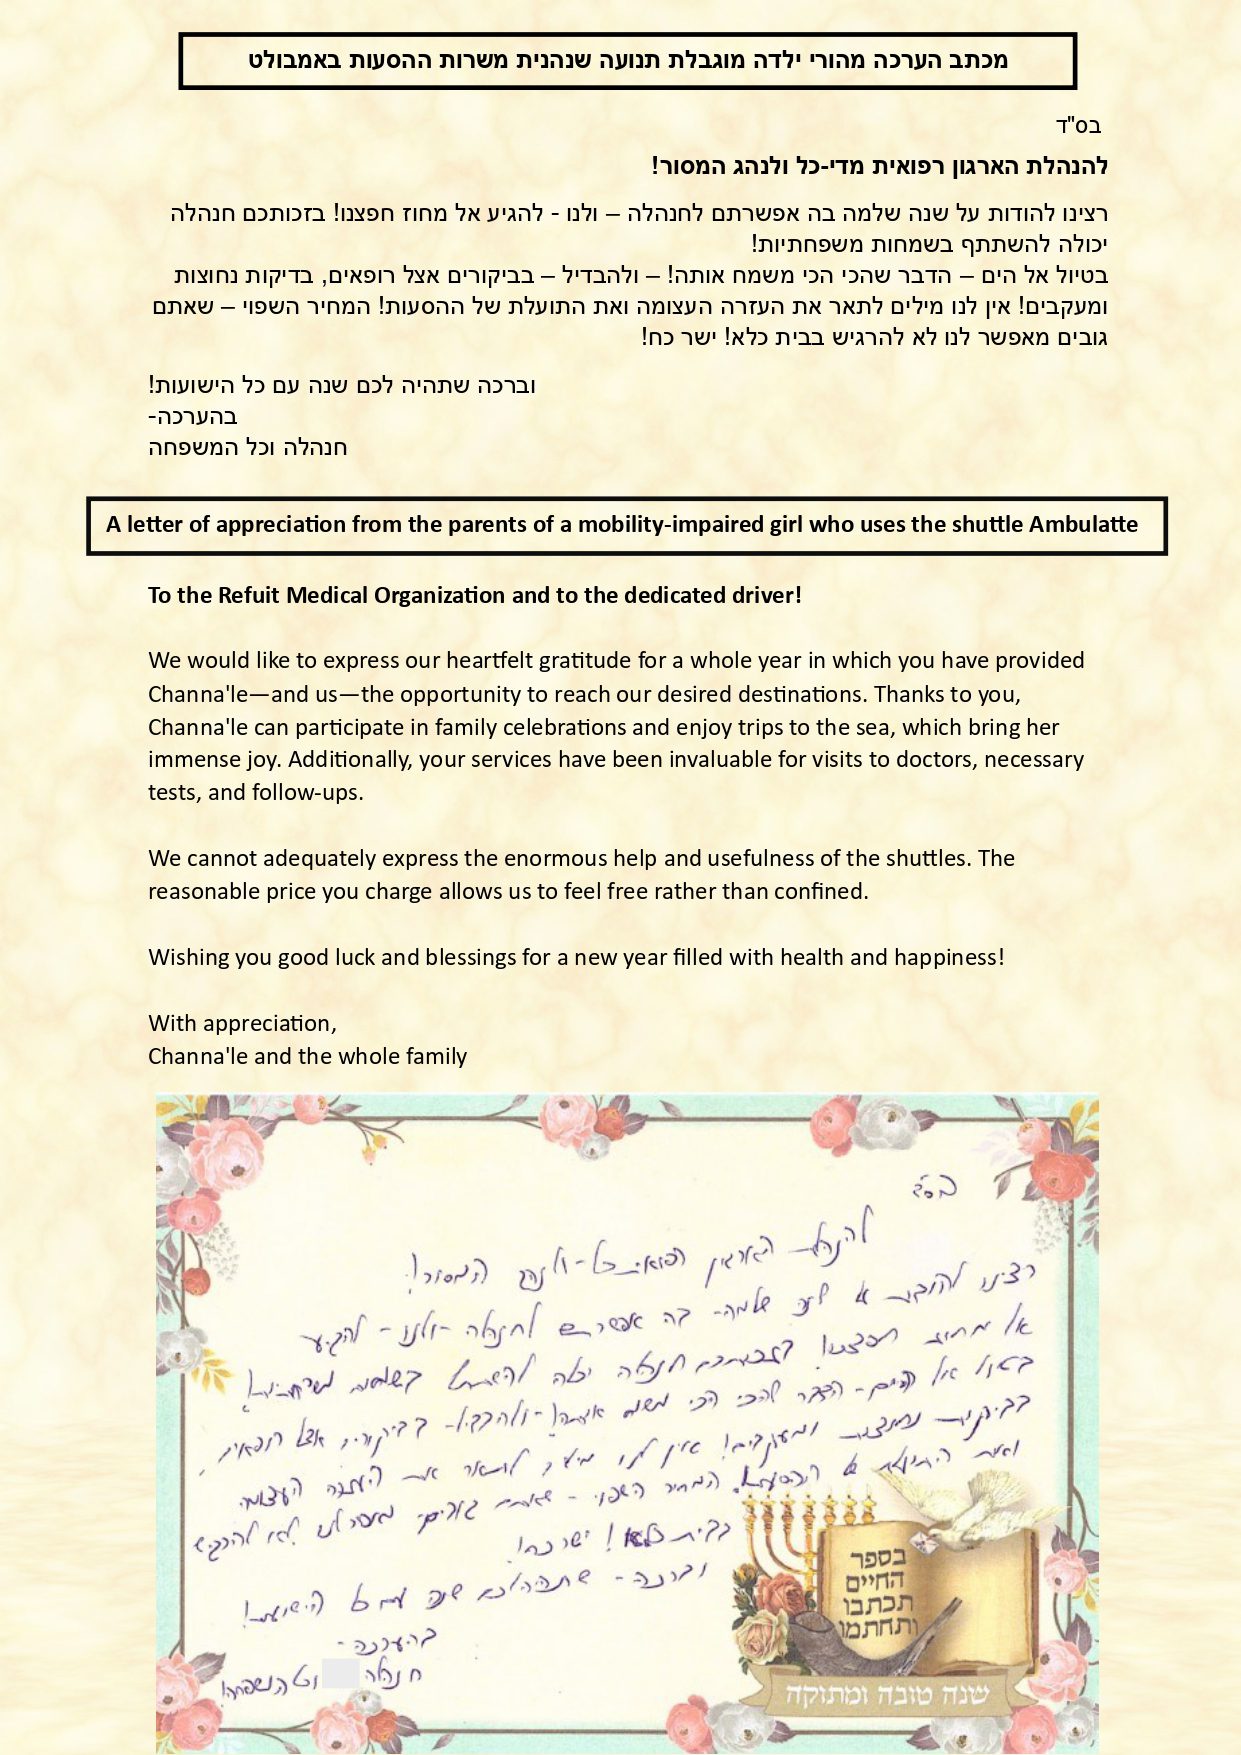 מכתב הערכה מהורי ילדה מוגבלת תנועה שנהנית משרות ההסעות באמבולט
בס"ד
להנהלת הארגון רפואית מדי-כל ולנהג המסור!
רצינו להודות על שנה שלמה בה אפשרתם לחנהלה – ולנו - להגיע אל מחוז חפצנו! בזכותכם חנהלה
יכולה להשתתף בשמחות משפחתיות!
בטיול אל הים – הדבר שהכי הכי משמח אותה! – ולהבדיל – בביקורים אצל רופאים, בדיקות נחוצות
ומעקבים! אין לנו מילים לתאר את העזרה העצומה ואת התועלת של ההסעות! המחיר השפוי – שאתם
גובים מאפשר לנו לא להרגיש בבית כלא! ישר כח!
וברכה שתהיה לכם שנה עם כל הישועות!
בהערכה-
חנהלה וכל המשפחה
A letter of appreciation from the parents of a mobility-impaired girl who uses the shuttle Ambulatte
To the Refuit Medical Organization and to the dedicated driver!
We would like to express our heartfelt gratitude for a whole year in which you have provided
Channa'le—and us—the opportunity to reach our desired destinations. Thanks to you,
Channa'le can participate in family celebrations and enjoy trips to the sea, which bring her
immense joy. Additionally, your services have been invaluable for visits to doctors, necessary
tests, and follow-ups.
We cannot adequately express the enormous help and usefulness of the shuttles. The
reasonable price you charge allows us to feel free rather than confined.
Wishing you good luck and blessings for a new year filled with health and happiness!
With appreciation,
Channa'le and the whole family
בס"ד
להנהלת הארגון רפואית כל - ולנהג המסור!
רצינו להודות על שנה שלמה - בה אפשרתם לחנהלה - ולנו - להגיע
אל מחוז חפצנו! בזכותכם חנהלה יכולה להשתתף בשמחות משפחתיות!
בטיול אל הים - הדבר שהכי הכי משמח אותה! - ולהבדיל - בביקורים אצל רופאים,
בדיקות נחוצות ומעקבים! אין לנו מילים לתאר את העזרה העצומה
ואת התועלת של ההסעות! המחיר השפוי - שאתם גובים מאפשר לנו לא להרגיש
בבית כלא! ישר כח!
וברכה - שתהיה לכם שנה עם כל הישועות!
בהערכה -
חנהלה וכל המשפחה!
בספר
החיים
תכתבו
ותחתמו
שנה טובה ומתוקה